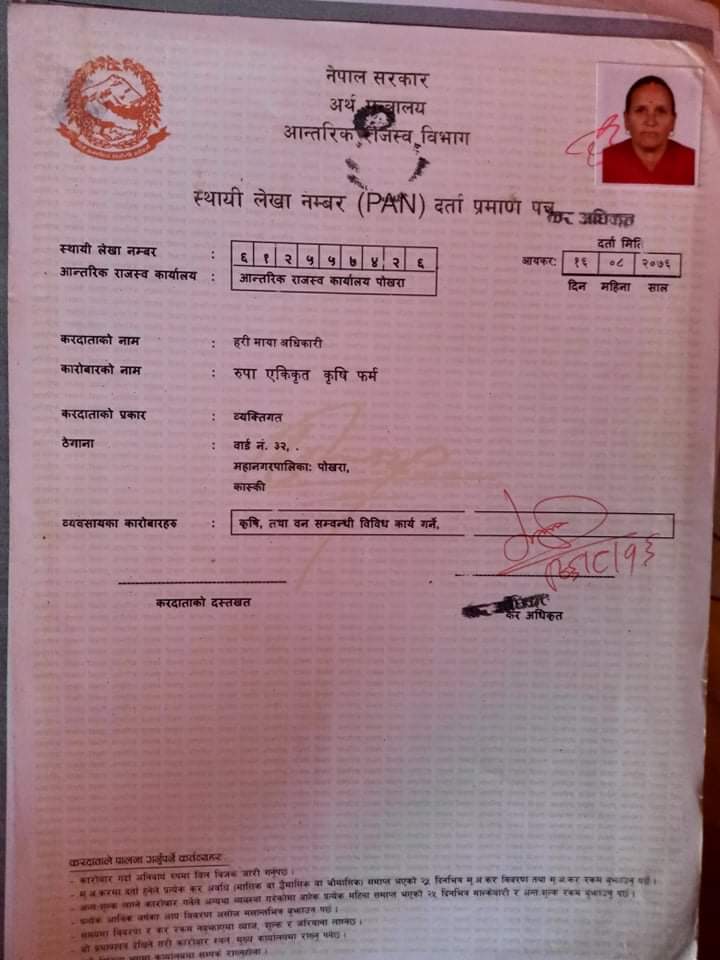 नेपाल सरकार
अर्थ मन्त्रालय
आन्तरिक राजस्व विभाग
स्थायी लेखा नम्बर (PAN) दर्ता प्रमाण पत्र
कर अधिकृत
दर्ता मिति
स्थायी लेखा नम्बर : ६ १ २ ५ ५ ७ ४ २ ६
आयकर: १६ ०८ २०७६
दिन महिना साल
आन्तरिक राजस्व कार्यालय : आन्तरिक राजस्व कार्यालय पोखरा
करदाताको नाम : हरी माया अधिकारी
कारोबारको नाम : रुपा एकिकृत कृषि फर्म
करदाताको प्रकार : व्यक्तिगत
ठेगाना : वार्ड नं. ३२, .
महानगरपालिका: पोखरा,
कास्की
व्यवसायका कारोबारहरु : कृषि, तथा वन सम्वन्धी विविध कार्य गर्ने,
करदाताको दस्तखत
कर अधिकृत
करदाताले पालना गर्नुपर्ने कर्तव्यहरु
- कारोबार गर्दा अनिवार्य रुपमा विल विजक जारी गर्नुपर्छ ।
- मू.अ.करमा दर्ता हुनेले प्रत्येक कर अवधि (मासिक वा द्वैमासिक वा चौमासिक) समाप्त भएको २५ दिनभित्र मू.अ.कर विवरण तथा मू.अ.कर रकम बुझाउनु पर्छ ।
- अन्तःशुल्क लाग्ने कारोबार गर्नेले अन्यथा व्यवस्था गरेकोमा बाहेक प्रत्येक महिना समाप्त भएको २५ दिनभित्र मास्केवारी र अन्तःशुल्क रकम बुझाउनु पर्छ ।
- प्रत्येक आर्थिक वर्षको आय विवरण असोज मसान्तभित्र बुझाउनु पर्छ ।
- समयमा विवरण र कर रकम नबुझाएमा व्याज, शुल्क र जरिवाना लाग्नेछ ।